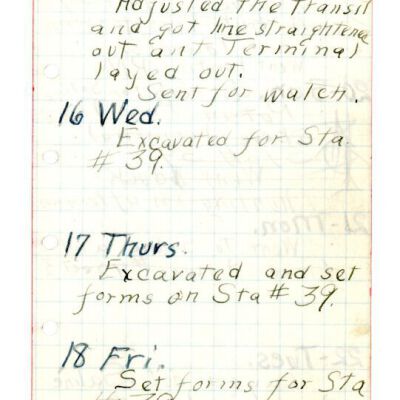 Adjusted the Transit
and got line straightened
out and Terminal
layed out.
Sent for watch.
16 Wed.
Excavated for Sta.
# 39.
17 Thurs.
Excavated and set
forms on Sta # 39.
18 Fri.
Set forms for Sta
# 39
21-Mon.
22-Tues.